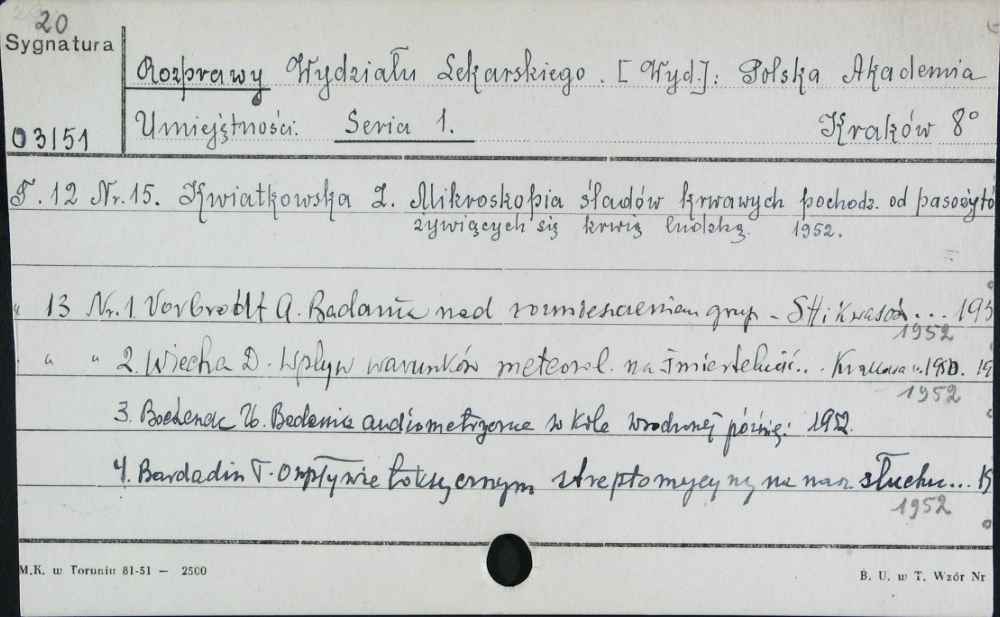 20
Sygnatura
Rozprawy Wydziału Lekarskiego. [Wyd.]: Polska Akademia
03/51 Umiejętności. Seria 1. Kraków 8°
T. 12 Nr. 15. Kwiatkowska I. Mikroskopia śladów krwawych pochodz. od pasożytó
żywiących się krwią ludzką. 1952.
" 13 Nr. 1 Vorbrodt A. Badania nad rozmieszczeniem grup - SH i kwasów... 195
1952
" " 2. Wiecha D. Wpływ warunków meteorol. na śmiertelność.. Krakowa w 1950. 19
1952
3. Bochenek W. Badania audiometryczne w kile wrodzonej późnej: 1952.
4. Bardadin T. O wpływie toksycznym streptomycyny na narz słuchu... 19
1952
M.K. w Toruniu 81-51 — 2500
B. U. w T. Wzór Nr